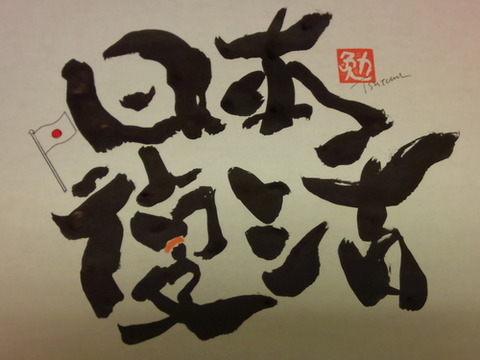 日本
復活
勉